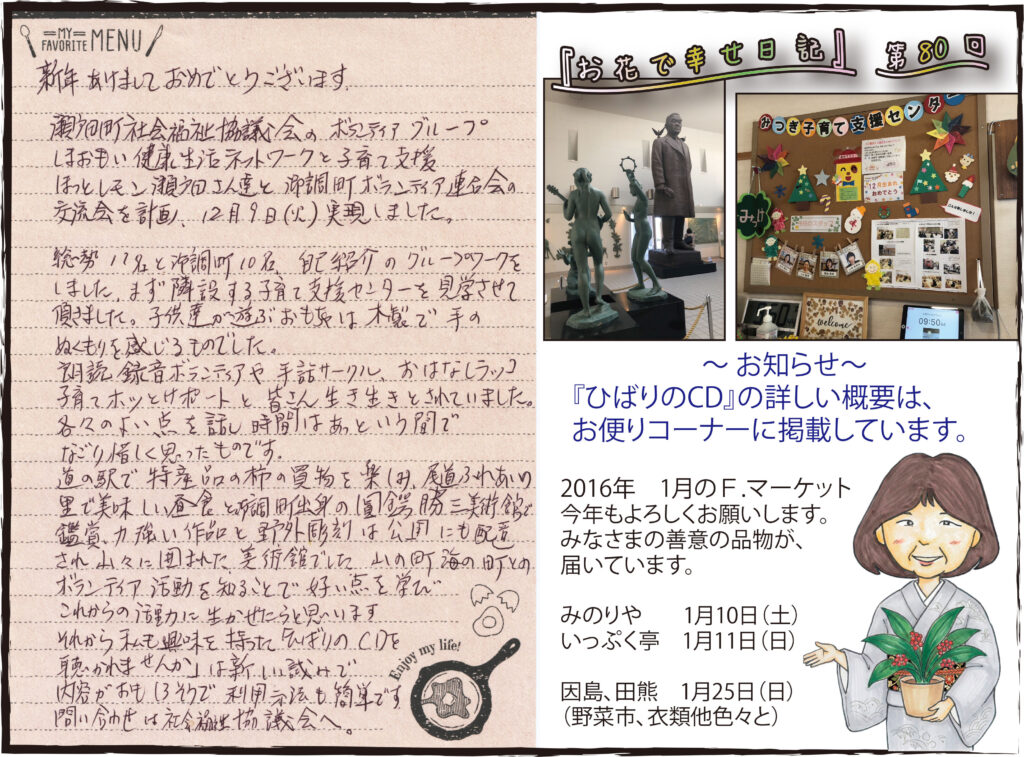 MY FAVORITE MENU
新年あけましておめでとうございます。
瀬戸田町社会福祉協議会のボランティアグループ
しおおもい健康生活ネットワークと子育て支援
ほっとレモン瀬戸田さん達と御調町ボランティア連合会の
交流会を計画、12月9日(火)実現しました。
総勢17名と御調町10名、自己紹介のグループワークを
しました。まず隣設する子育て支援センターを見学させて
頂きました。子供達が遊ぶおもちゃは木製で手の
ぬくもりを感じるものでした。
朗読録音ボランティアや手話サークル、おはなしラッコ
子育てホッとサポートと皆さん生き生きとされていました。
各々のよい点を話し時間はあっという間で
なごり惜しく思ったものです。
道の駅で特産品の柿の買物を楽しみ、尾道ふれあいの
里で美味しい昼食と御調町出身の圓鍔勝三美術館で
鑑賞、力強い作品と野外彫刻は公園にも配置
され山々に囲まれた美術館でした。山の町海の町との
ボランティア活動を知ることで好い点を学び
これからの活動に生かせたらと思います
それから私も興味を持った「ひばりのCDを
聴かれませんか」は新しい試みで
内容がおもしろそうで利用方法も簡単です
問い合わせは社会福祉協議会へ。
Enjoy my life!
『お花で幸せ日記』 第80回
みつぎ子育て支援センター
みなけ
12月生まれ
おめでとう
welcome
09:50
～お知らせ～
『ひばりのCD』の詳しい概要は、
お便りコーナーに掲載しています。
2016年 1月のF.マーケット
今年もよろしくお願いします。
みなさまの善意の品物が、
届いています。
みのりや 1月10日(土)
いっぷく亭 1月11日(日)
因島、田熊 1月25日(日)
(野菜市、衣類他色々と)